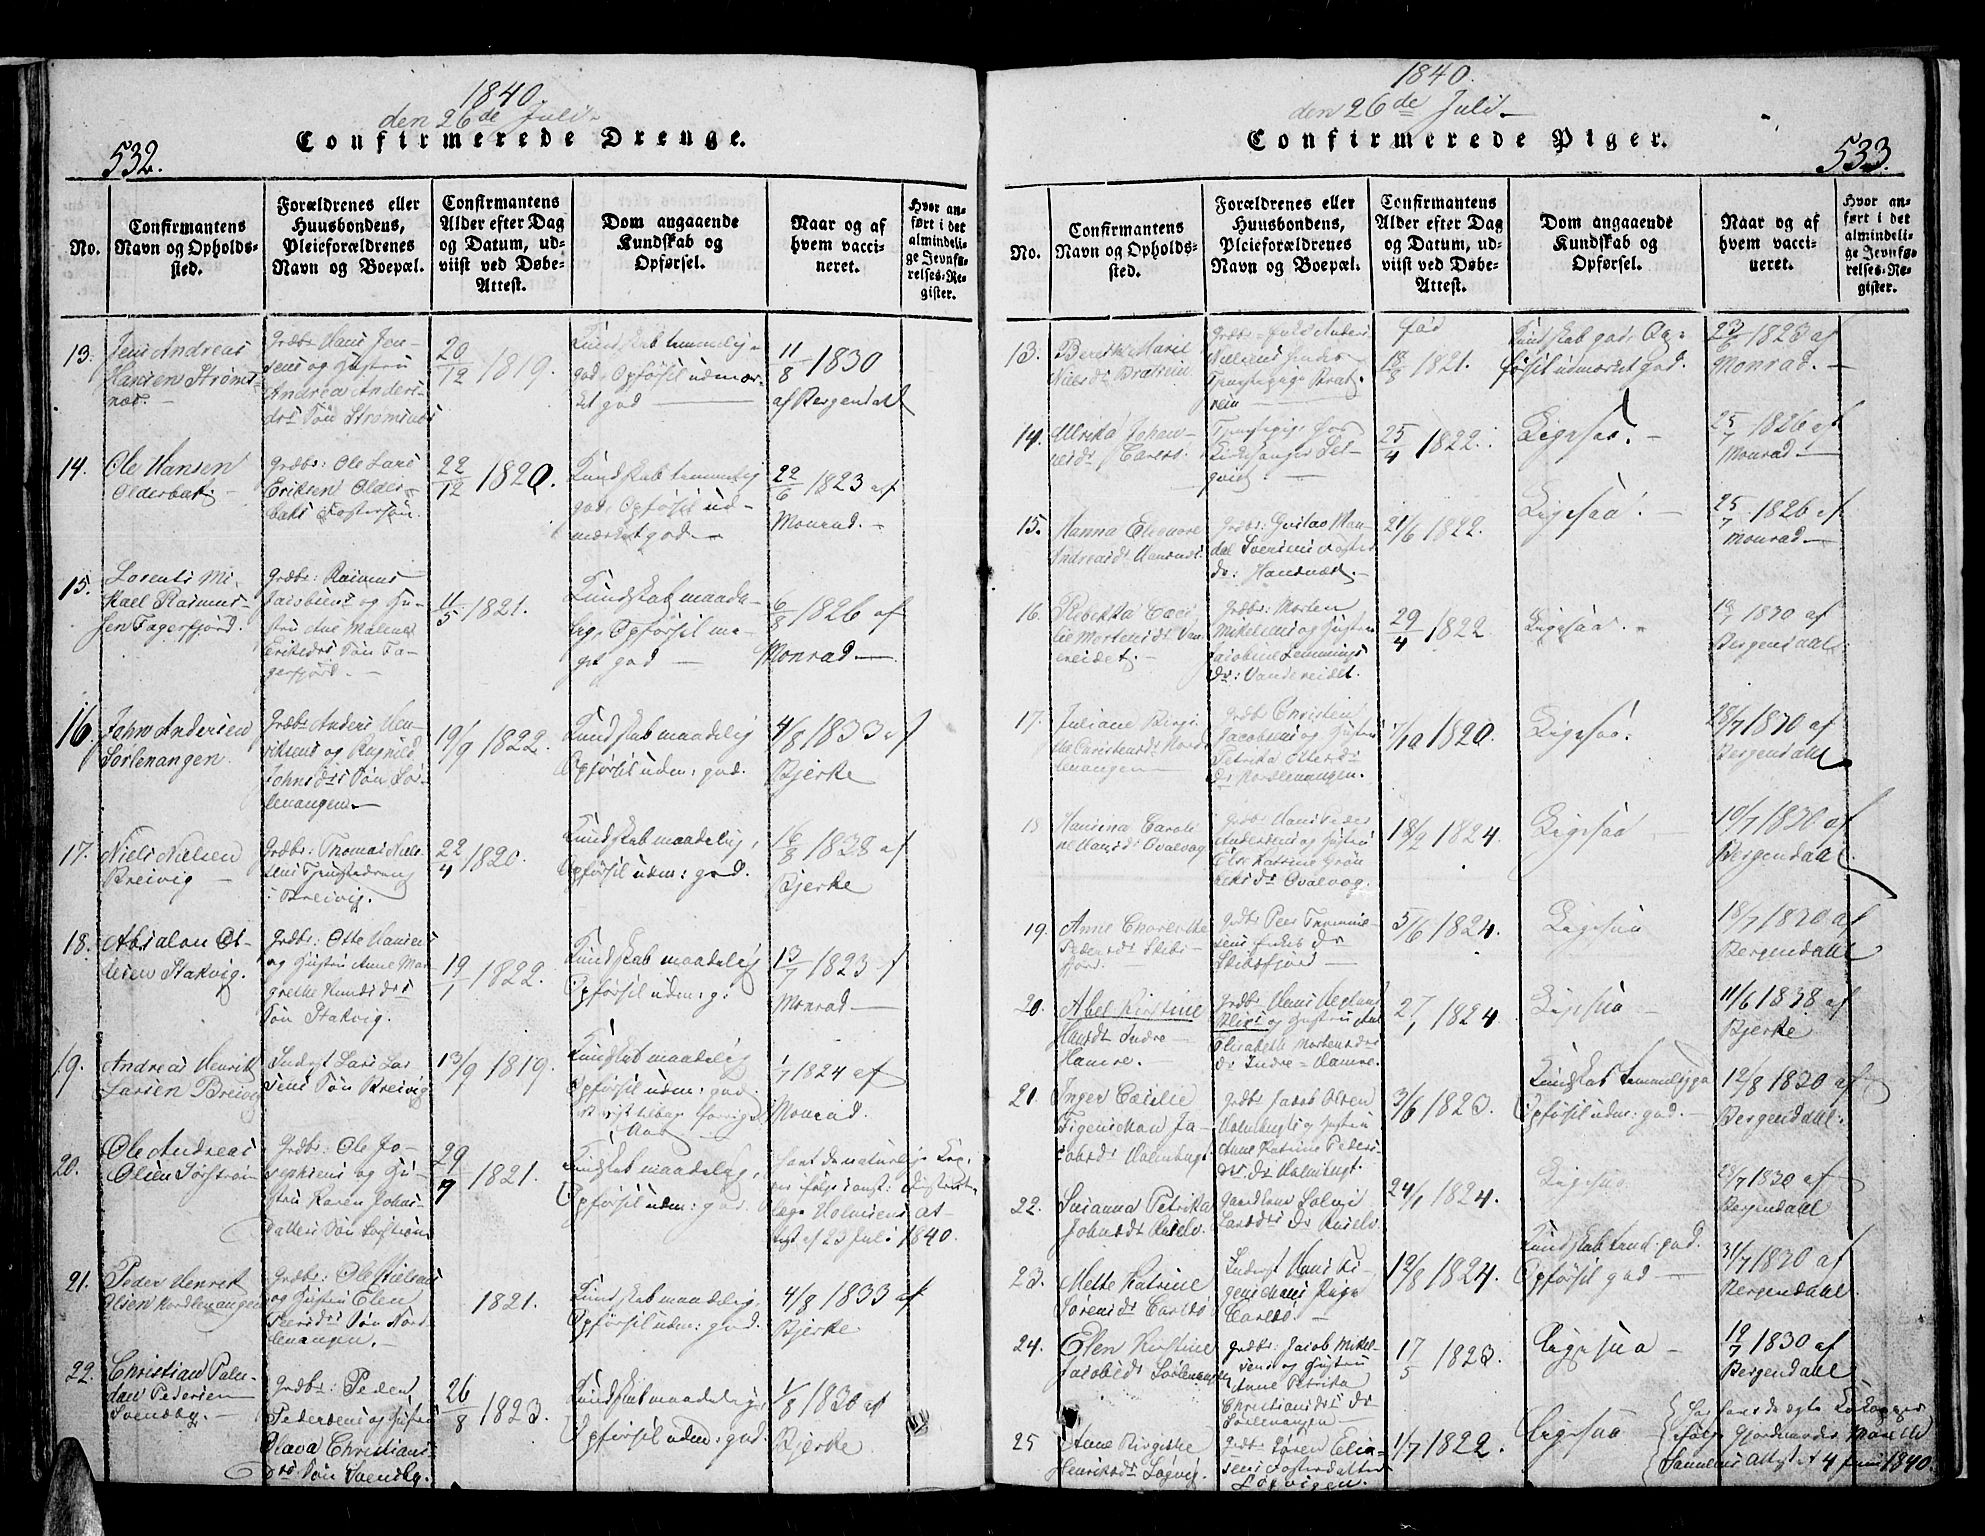 1840.
den 26de Juli.
Confirmerede Drenge.
532.
No.
Confirmantens Navn og Opholdssted.
Forældrenes eller Huusbondens, Pleieforældrenes Navn og Boepæl.
Confirmantens Alder efter Dag og Datum, udviist ved Døbe-Attest.
Dom angaaende Kundskab og Opførsel.
Naar og af hvem vaccineret.
Hvor anført i det almindelige Jevnførelses-Register.
13.
Jens Andreas
Hansen Strøms
næs.
Grdbr Hans Jen-
sens og Hustru
Andrea Anders-
drs Søn Strømnæs
20/12 1819.
Kundskab temmelig
god, Opførsel udmær-
ket god
11/8 1830
af Bergendahl
14.
Ole Hansen
Olderbak
Grdbr: Ole Lars
Eriksen Older-
baks Fostersøn.
22/12 1820.
Kundskab temmelig
god, Opførsel ud-
mærket god
22/6 1823 af
Monrad.
15.
Lorents Mi-
kael Rasmus-
sen Fagerfjord.
Grdbr: Rasmus
Jacobsens og Hu-
stru Ane Malene
Eriksdrs Søn Fa-
gerfjord.
11/5 1821.
Kundskab maade-
lig, Opførsel me-
get god
6/8 1826 af
Monrad
16
John Andersen
Sørlenangen.
Grdbr Anders Hen-
riksens og Ragnild
Johnsdrs Søn Sør-
lenangen.
19/9 1822.
Kundskab maadelig
Opførsel udm: god.
4/8 1833 af
Bjerke
17.
Niels Nielsen
Breivig
Grdbr: Thomas Niel-
sens Tjenstedreng
i Breivig.
22/4 1820.
Kundskab maadelig,
Opførsel udm: god.
16/8 1838 af
Bjerke
18.
Absalon Ot-
tesen Stakvig.
Grdbr: Otte Hansens
og Hustru Ane Mar-
grethe Knudsdrs
Søn Stakvig.
19/1 1822.
Kundskab maadelig
Opførsel udm: g:
13/7 1823 af
Monrad
19.
Andreas Henrik
Larsen Breivig
Inderst Lars Lar
sens Søn Breivig
13/9 1819.
Kundskab maadelig
Opførsel udm: god.
1/7 1824 af
Monrad.
20.
Ole Andreas
Olsen Sørstrøm
Grdbr: Ole Jo-
sephsens og Hu-
stru Karen Johns
Datters Søn
29/9 1821.
Kundskab maadelig,
Opførsel udm: god.
havt de naturlige Kop-
per ifølge const: District-
læge Holmsens At-
test af 23 Juli 1840.
21.
Peder Henrik
Olsen Nordlenangen
Grdbr: Ole Nielsens
og Hustru Elen
Peersdrs Søn Nord
lenangen.
1821.
Kundskab maadelig,
Opførsel udm: god.
4/8 1833 af
Bjerke.
22.
Christian Palu-
dan Pedersen
Svendsby.
Grdbr: Peder
Pedersens og Hustru
Olava Christians-
drs Søn Svendsby.
26/8 1823.
Kundskab maadelig,
Opførsel udm: god.
1/8 1830 af
Bjerke.
1840.
den 26de Juli.
Confirmerede Piger.
533.
No.
Confirmantens Navn og Opholdssted.
Forældrenes eller Huusbondens, Pleieforældrenes Navn og Boepæl.
Confirmantens Alder efter Dag og Datum, udviist ved Døbe-Attest.
Dom angaaende Kundskab og Opførsel.
Naar og af hvem vaccineret.
Hvor anført i det almindelige Jevnførelses-Register.
13.
Berethe Marie
Nielsdr Bratrein
Tjenestepige Brat
rein
fød
18/8 1821.
Kundskab god, Op-
førsel udmærket god.
22/6 1823 af
Monrad.
14.
Ulrika Johan-
nesdr Carlsø.
Tjenstepige hos
Kirkesanger
25/4 1822.
Ligesaa.
25/7 1826 af
Monrad
15.
Hanna Eleonore
Andreasdr Hansnæs.
Grdbr: Gustav Man-
dal Svensens Foster
dr: Hansnæs.
21/6 1822.
Ligesaa.
25/7 1826 af
Monrad
16.
Rebekka Ceci-
lie Mortensdr Van-
ereidet.
Grdbr: Morten
Mikelsens og Hustru
Jacobine Lemmings
dr: Vandereidet.
29/4 1822
Ligesaa.
18/7 1830 af
Bergendahl
17.
Juliane Birgi-
the Christensdr Nord-
lenangen
Grdbr Christen
Jacobsens og Hustru
Petrika Ottesdr:
dr Nordlenangen.
7/10 1820.
Ligesaa.
28/7 1830 af
Bergendahl
18
Hansina Caroli
ne Hansdr Qvalvog
Grdbr Hans Peder
Andersens og Hustru
Else Katrine Grøn
beksdr Qvalvog.
18/2 1824.
Ligesaa
10/7 1830 af
Bergendahl.
19.
Anne Chorethe
Pedersdr Skibs-
fjord.
Grdbr Peer
Skibsfjord
5/6 1824.
Ligesaa
18/7 1830 af
Bergendahl
20.
Abel Kirstine
Hansdr Indre
Hamre.
Grdbr: Hans
og Hustru Ane
Elisabeth Mortensdrs
dr Indre-Hamre.
27/1 1824.
Ligesaa
11/6 1838 af
Bjerke
21.
Inger Cæcilie
Jacobsdr Holmbugt
Grdbr: Jacob Olsen
Holmbugts og Hustru
Anne Katrine Peders-
drs dr Holmbugt.
3/6 1823.
Kundskab temmelig go
Opførsel udm: god.
12/8 1830 af
Bergendahl.
22.
Susanna Petrika
Johnsdr
24/1 1824.
Ligesaa.
28/7 1830 af
Bergendahl
23.
Mette Katrine
Sørensdr Carlsø
Inderst Hans
Carlsø.
12/8 1824.
Opførsel god
31/7 1830 af
Bergendahl.
24.
Elen Kirstine
Jacobsdr Sørlenangen
Grdbr: Jacob Mikel-
sens og Hustru
Anne Petrika
Christiansdrs dr
Sørlenangen
17/5 1823.
Ligesaa
19/7 1830 af
Bergendahl
25
Anne Birgithe
Henriksdr Løgvig.
Grdbr: Søren Elia-
sens Fosterdatter
1/7 1822.
Ligesaa
har havt de ægte Kokopper
ifølge Gjordmoder
Attest 4 Juni 1840.